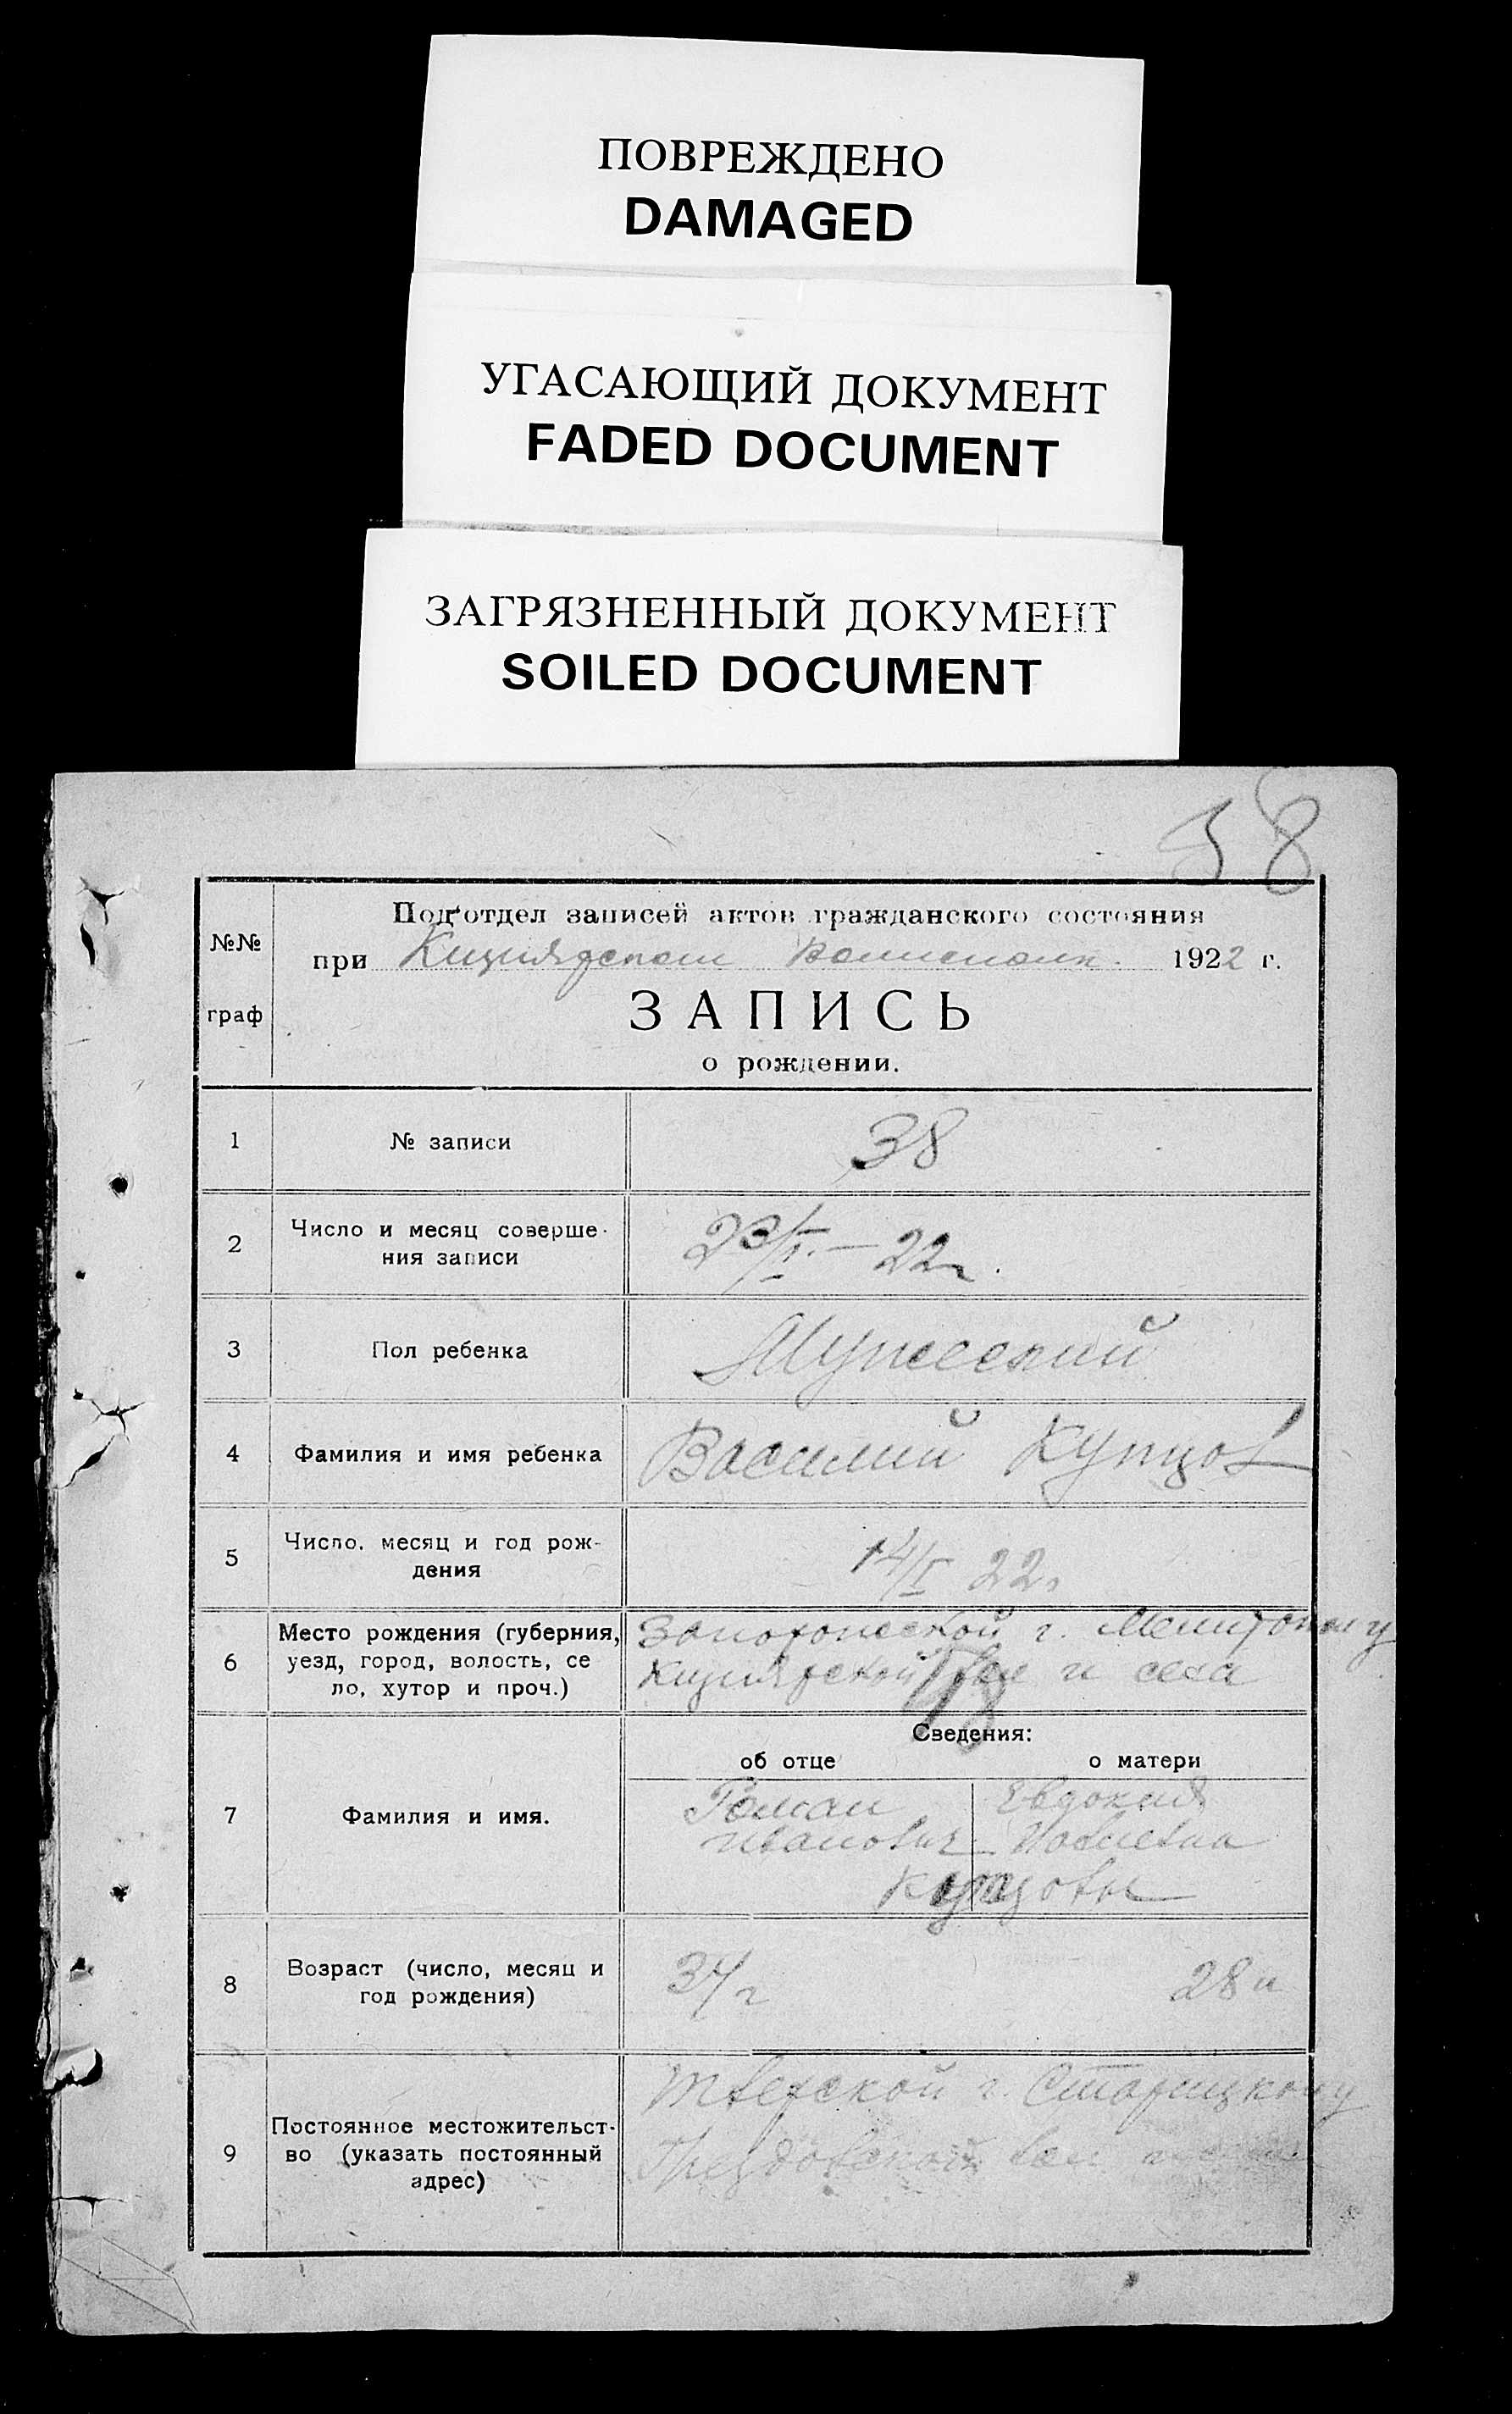 ПОВРЕЖДЕНО
DAMAGED
УГАСАЮЩИЙ ДОКУМЕНТ
FADED DOCUMENT
ЗАГРЯЗНЕННЫЙ ДОКУМЕНТ
SOILED DOCUMENT
38
№№
граф
Подотдел записей актов гражданского состояния
при 1922 г.
ЗАПИСЬ
о рождении.
1 № записи 38
2 Число и месяц соверше-
ния записи 23/I. — 22 г.
3 Пол ребенка Мужеский
4 Фамилия и имя ребенка Василий Купцов
5 Число, месяц и год рож-
дения 14/I 22 г
6 Место рождения (губерния, Запорожской г. Мелитопол у
уезд, город, волость, се Кизиярской вол и села
ло, хутор и проч.)
Сведения:
об отце о матери
7 Фамилия и имя.
Роман Евдокия
Иванович
Купцовы
8 Возраст (число, месяц и
год рождения) 34 г 28 л
9 Постоянное местожительст-
во (указать постоянный
адрес)
Тверской г. Старицкому
вол